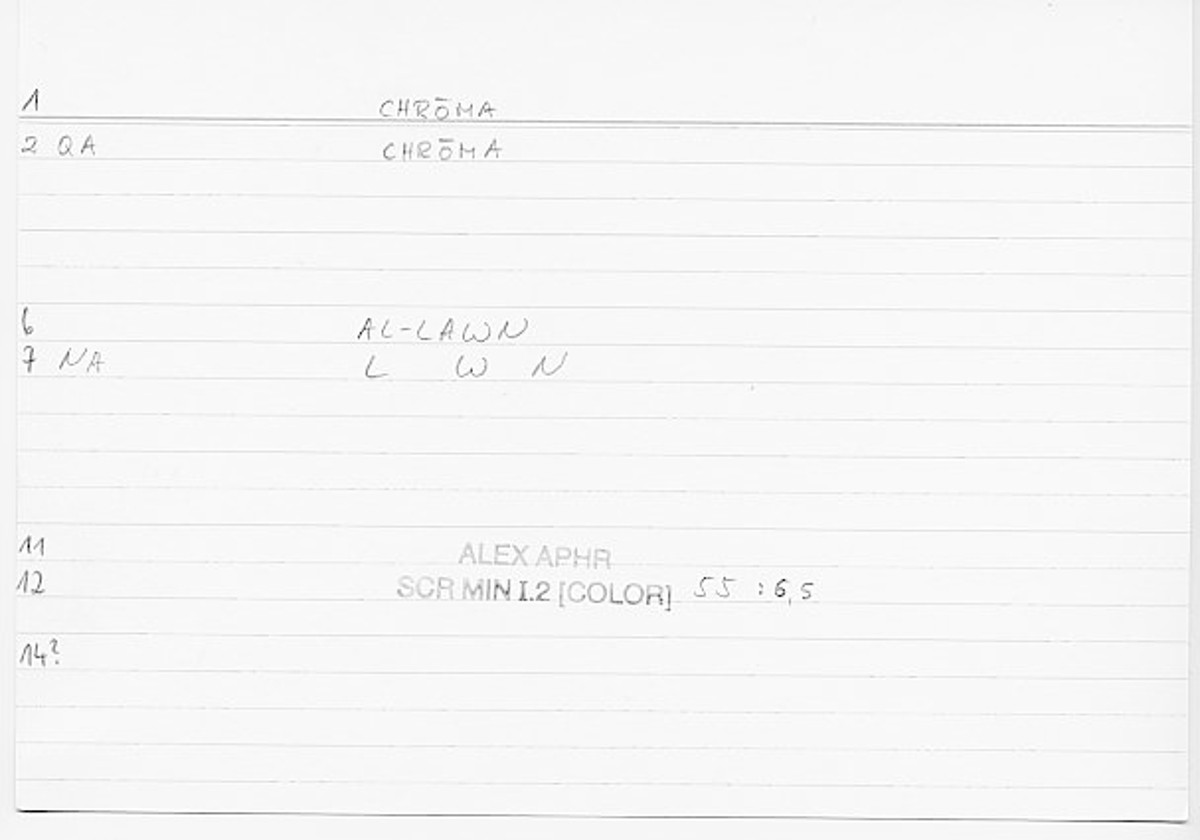 1 CHRŌMA
2 QA CHRŌMA
6 AL-LAWN
7 NA L W N
11 ALEX APHR
12 SCR MIN I.2 [COLOR] 55 : 6,5
14?